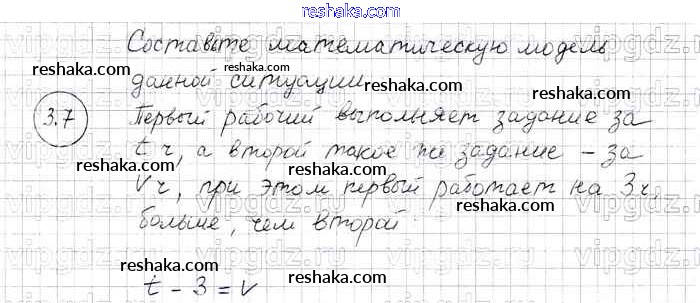 reshaka.com
Составьте математическую модель
reshaka.com reshaka.com reshaka.com
данной ситуации
3.7 Первый рабочий выполняет задание за
t ч, а второй такое же задание – за
reshaka.com reshaka.com reshaka.com
V ч, при этом первый работает на 3 ч.
больше, чем второй
reshaka.com reshaka.com reshaka.com
t - 3 = V
vipgdz.com